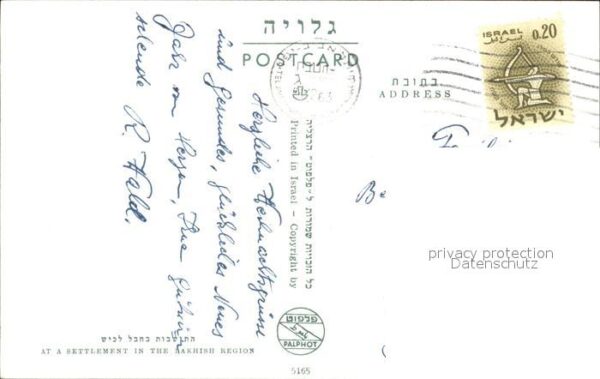 גלויה
POSTCARD
בתובת
ADDRESS
ISRAEL 0.20
ישראל
Herzliche Weihnachtsgrüsse
und gesundes, glückliches Neues
Jahr von Herzen, Ihre
R. Hald.
כל הזכויות שמורות ל"פלפוט" הרצליה
Printed in Israel - Copyright by
פלפוט
PALPHOT
התישבות בחבל לכיש
AT A SETTLEMENT IN THE LAKHISH REGION
5165
Be
privacy protection
Datenschutz